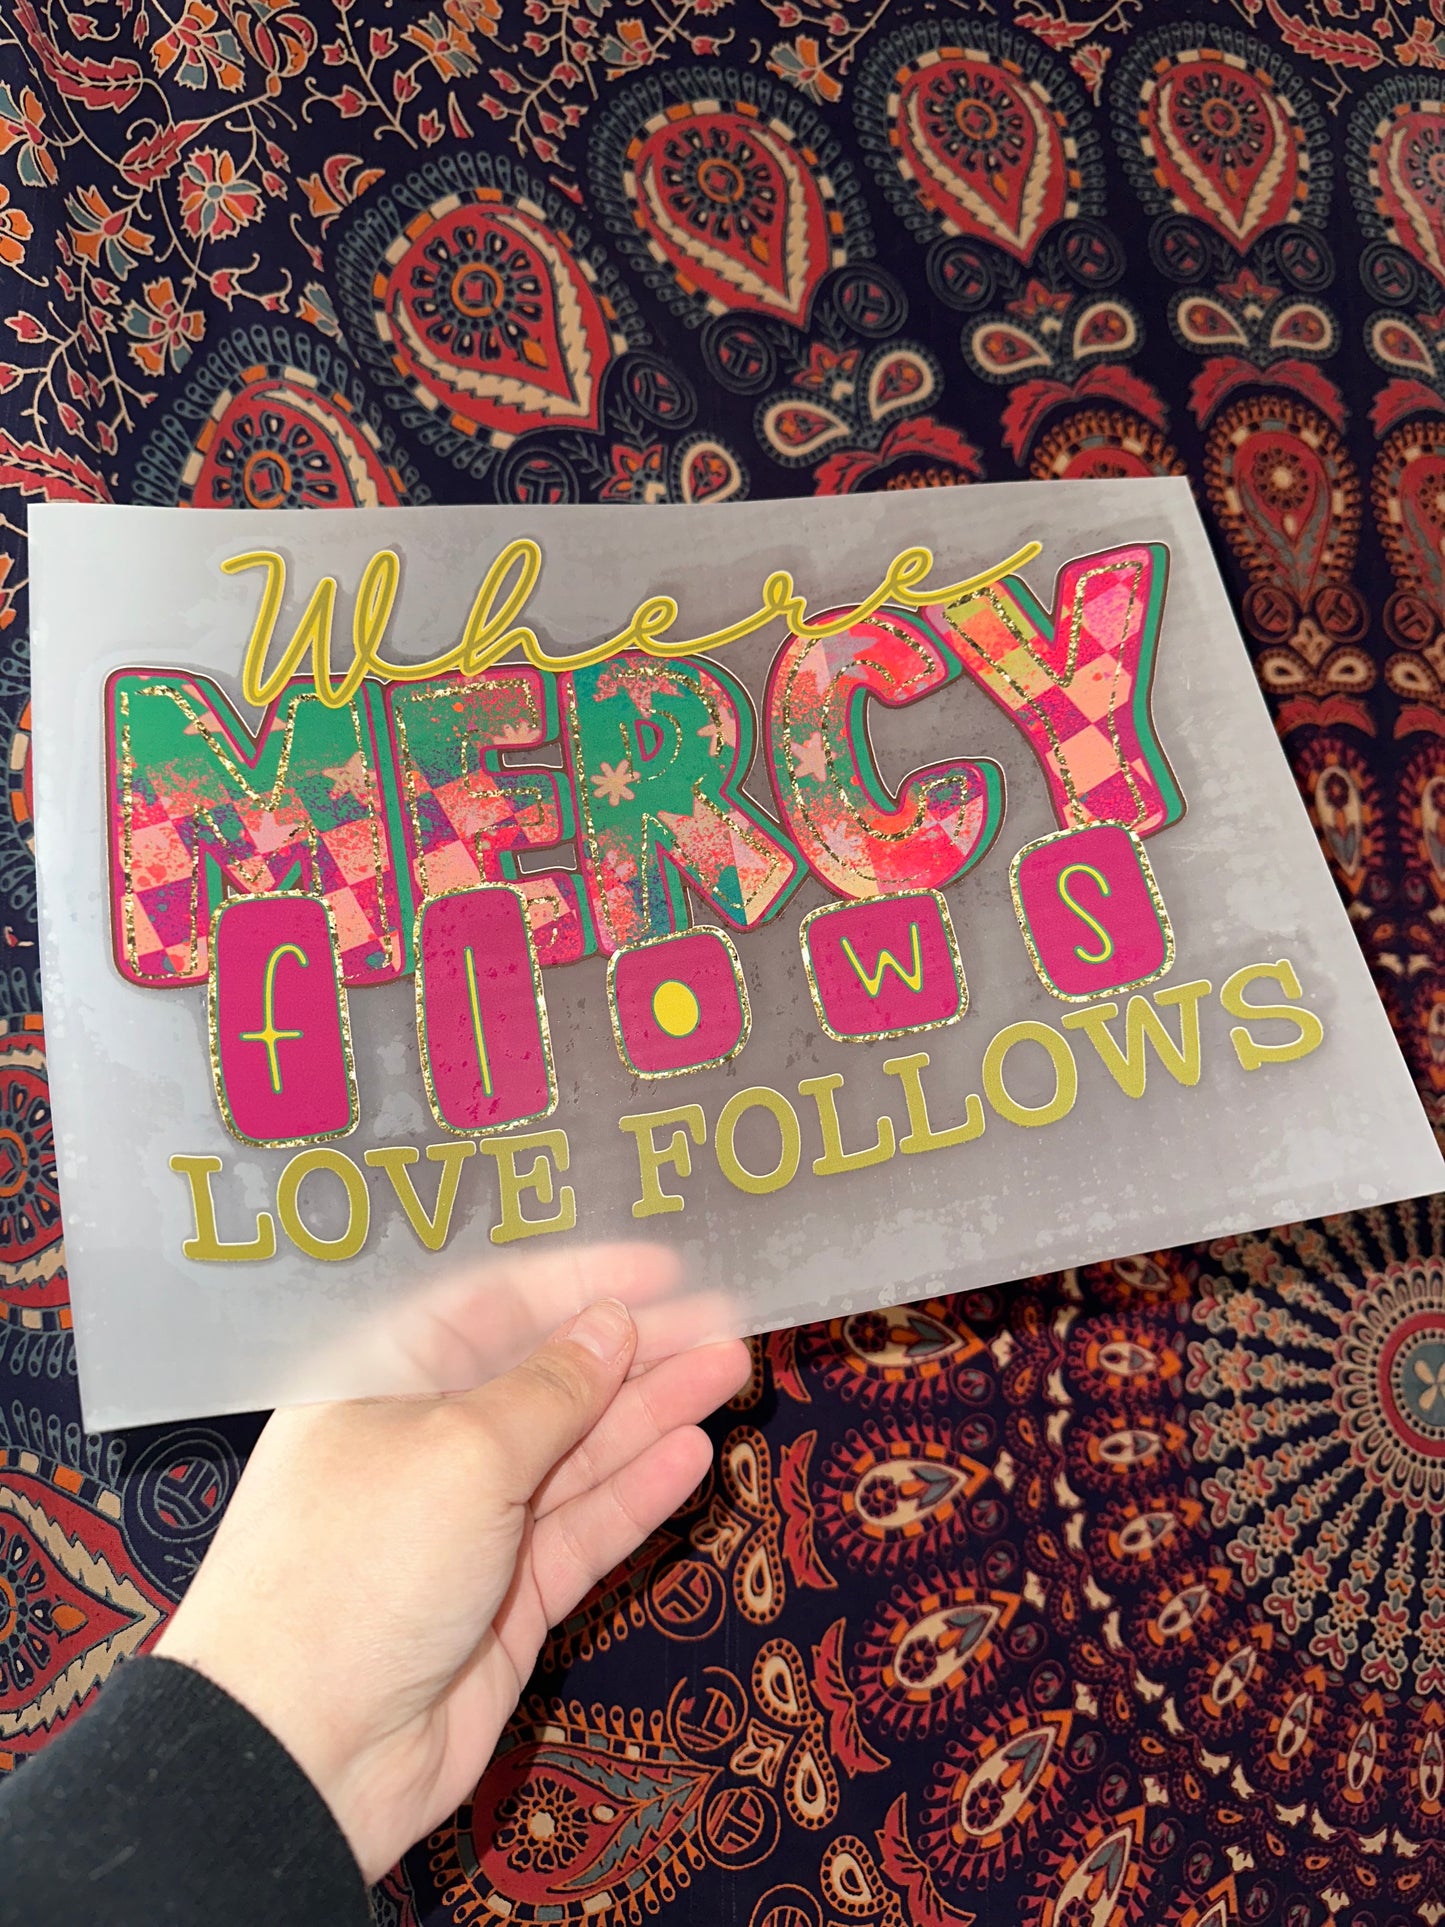 Where
MERCY
flows
LOVE FOLLOWS